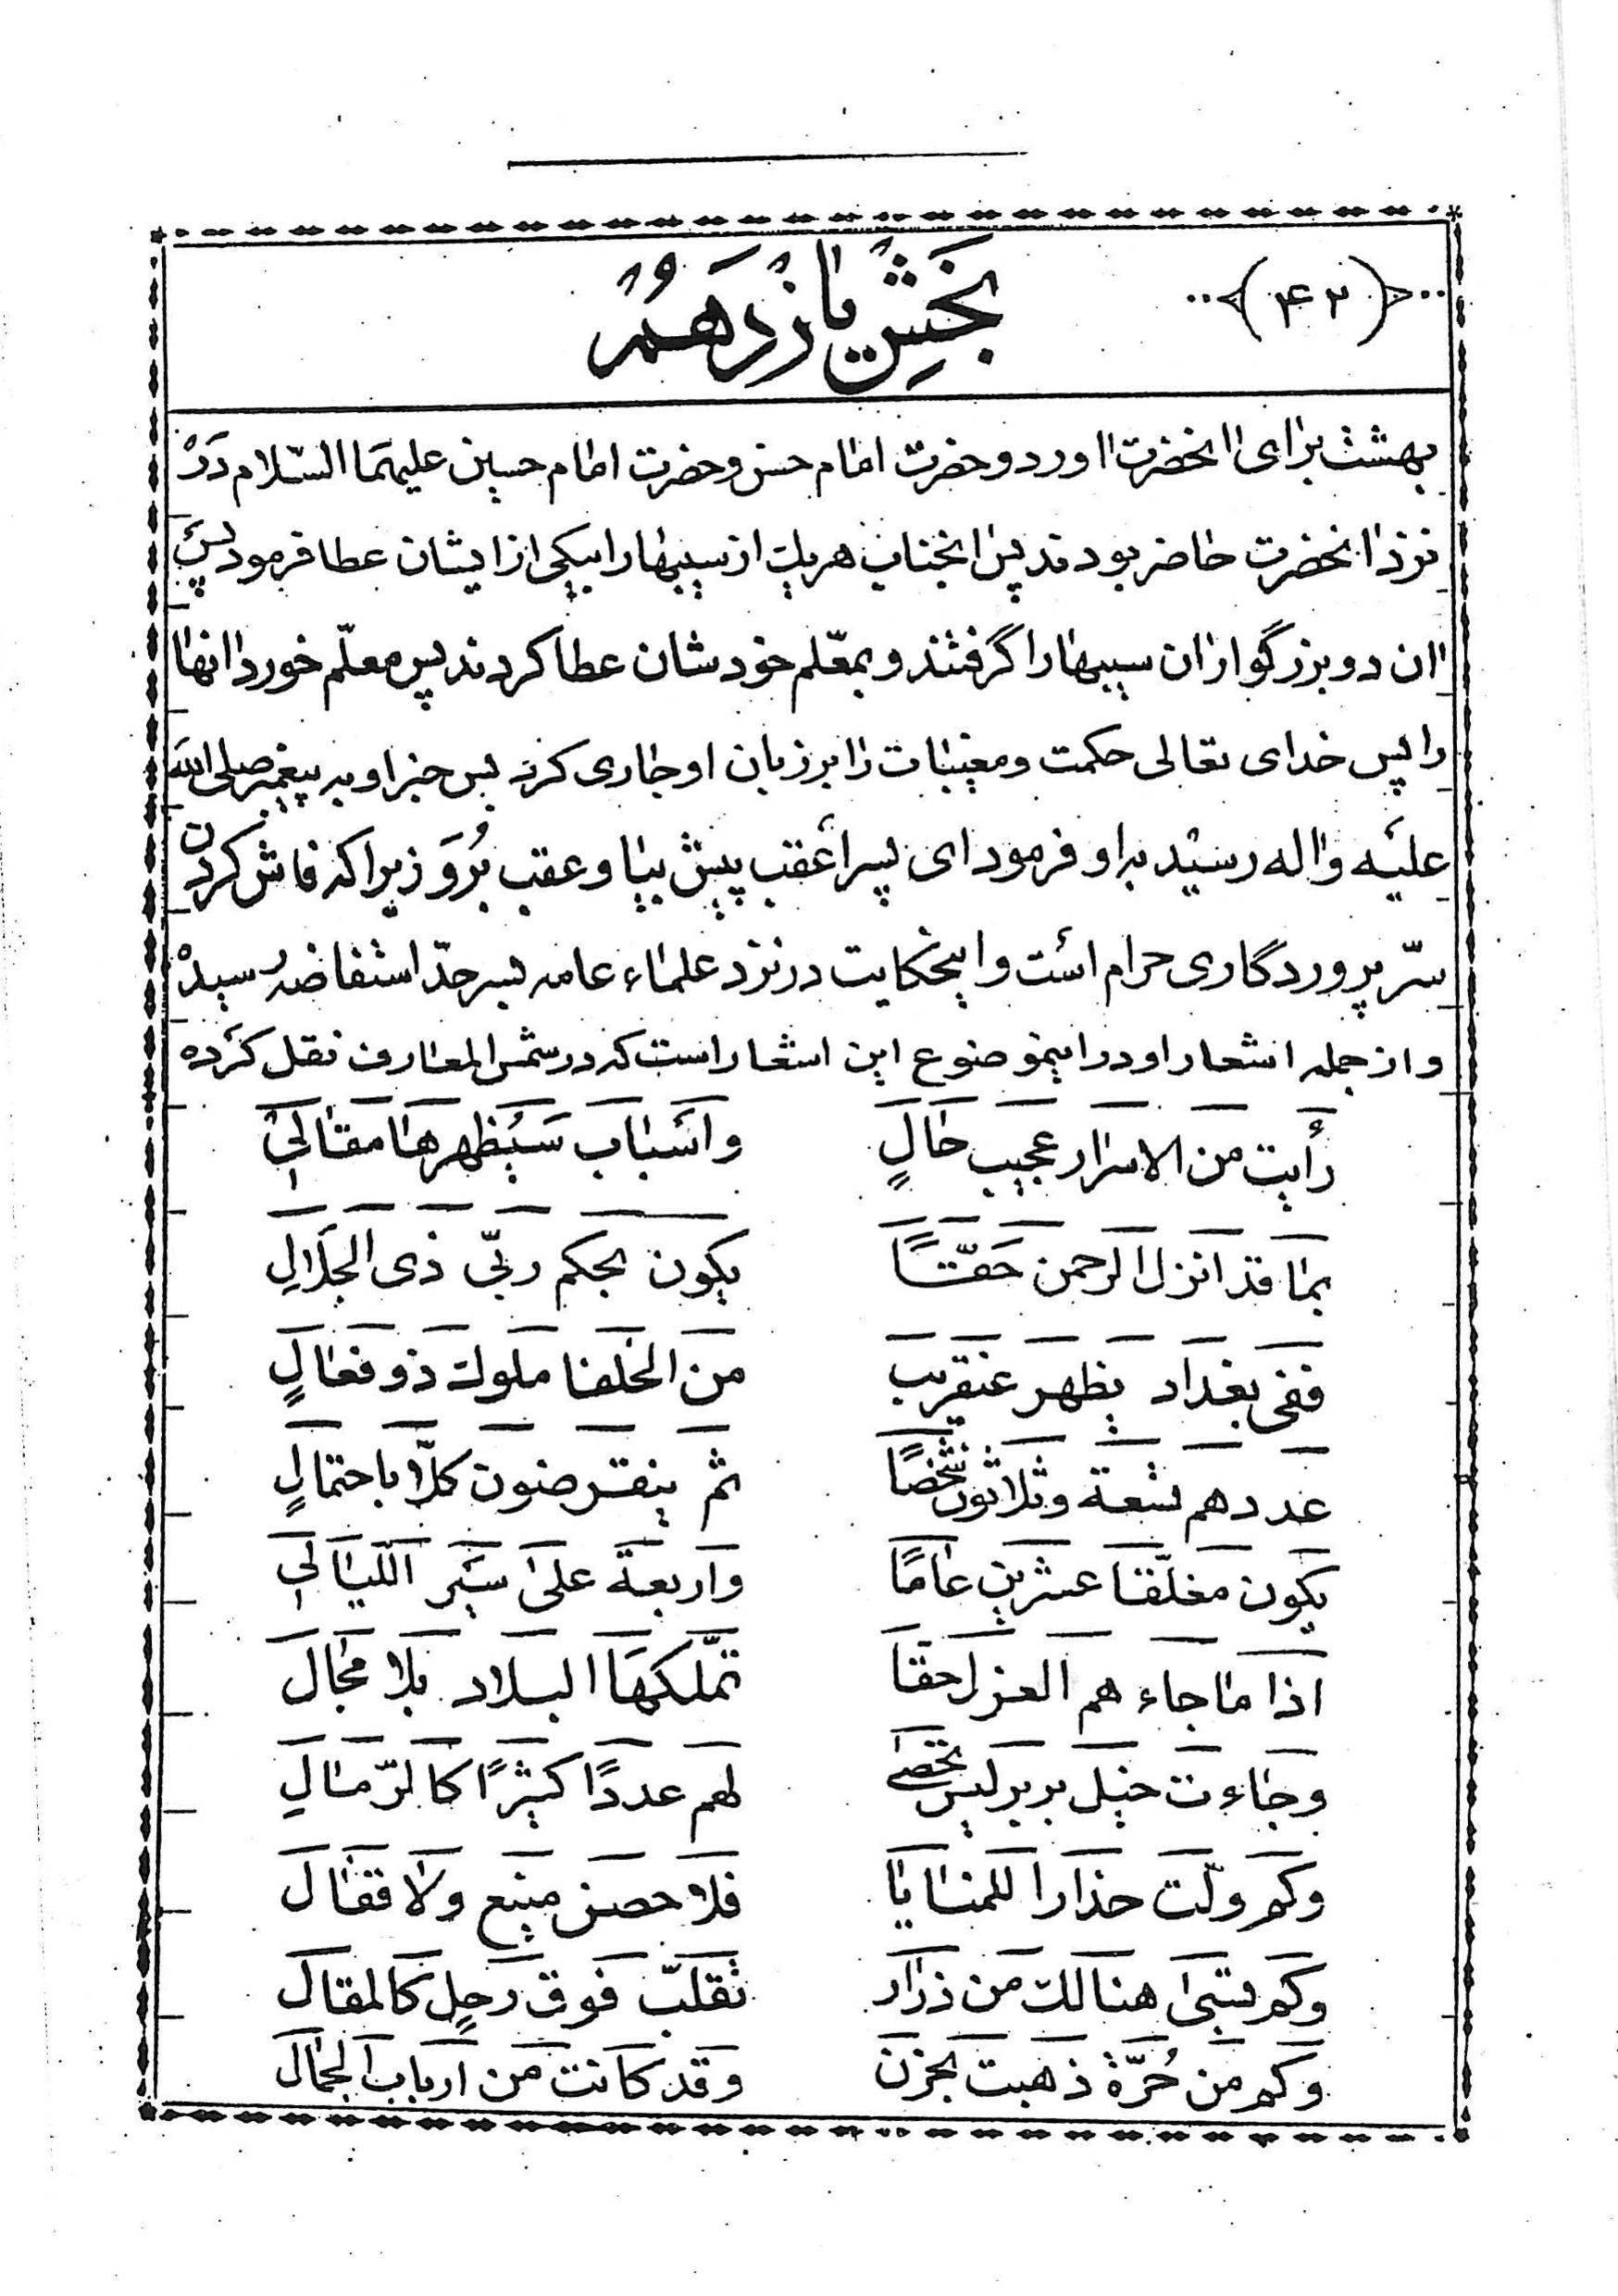 ﴿۴۲﴾
بخش یازدهم
بهشت برای انحضرت اورد و حضرت امام حسن و حضرت امام حسین علیهما السلام در
نزد انحضرت حاضر بودند پس انجناب هر یک از سیبها را بیکی از ایشان عطا فرمود پس
ان دو بزرگوار ان سیبها را گرفتند و بمعلّم خودشان عطا کردند پس معلّم خورد انها
را پس خدای تعالی حکمت و مغیبات را بر زبان او جاری کرد پس خبر او به پیغمبر صلی الله
علیه و اله رسید به او فرمود ای پسر اعقب پیش بیا و عقب بُرَو زیرا که فاش کردن
سرّ پروردگاری حرام است و اینحکایت در نزد علماء عامه بسر حدّ استفاضه رسیده
و از جمله اشعار او در اینموضوع این اشعار است که در شمس المعارف نقل کرده
رأیت من الاسرار عجیب حالٍ واسباب سیظهرها مقالی
بما قد انزل الرحمن حقّاً یکون بحکم ربّی ذی الجلالِ
ففی بغداد یظهر عنقریب من الخلفا ملوک ذو فعالٍ
عددهم تسعة و ثلاثون شخصًا ثم ینقرضون کلّا باحتمالٍ
یکون مغلّقا عشرین عامًا و اربعة علی سیر اللیالی
اذا ما جاءهم العزل حقا تملّکها البلاد بلا مجال
و جاءت خیل بربر لیس تحصی لهم عددًا کثیرًا کالرّمالِ
و کم ولّت حذارا للمنایا فلا حصن منیع ولا قفال
و کم تسبی هنالک من ذرار تقلّب فوق رحلٍ کالمقال
و کم من حُرّة ذهبت بحزن و قد کانت من ارباب الجمال